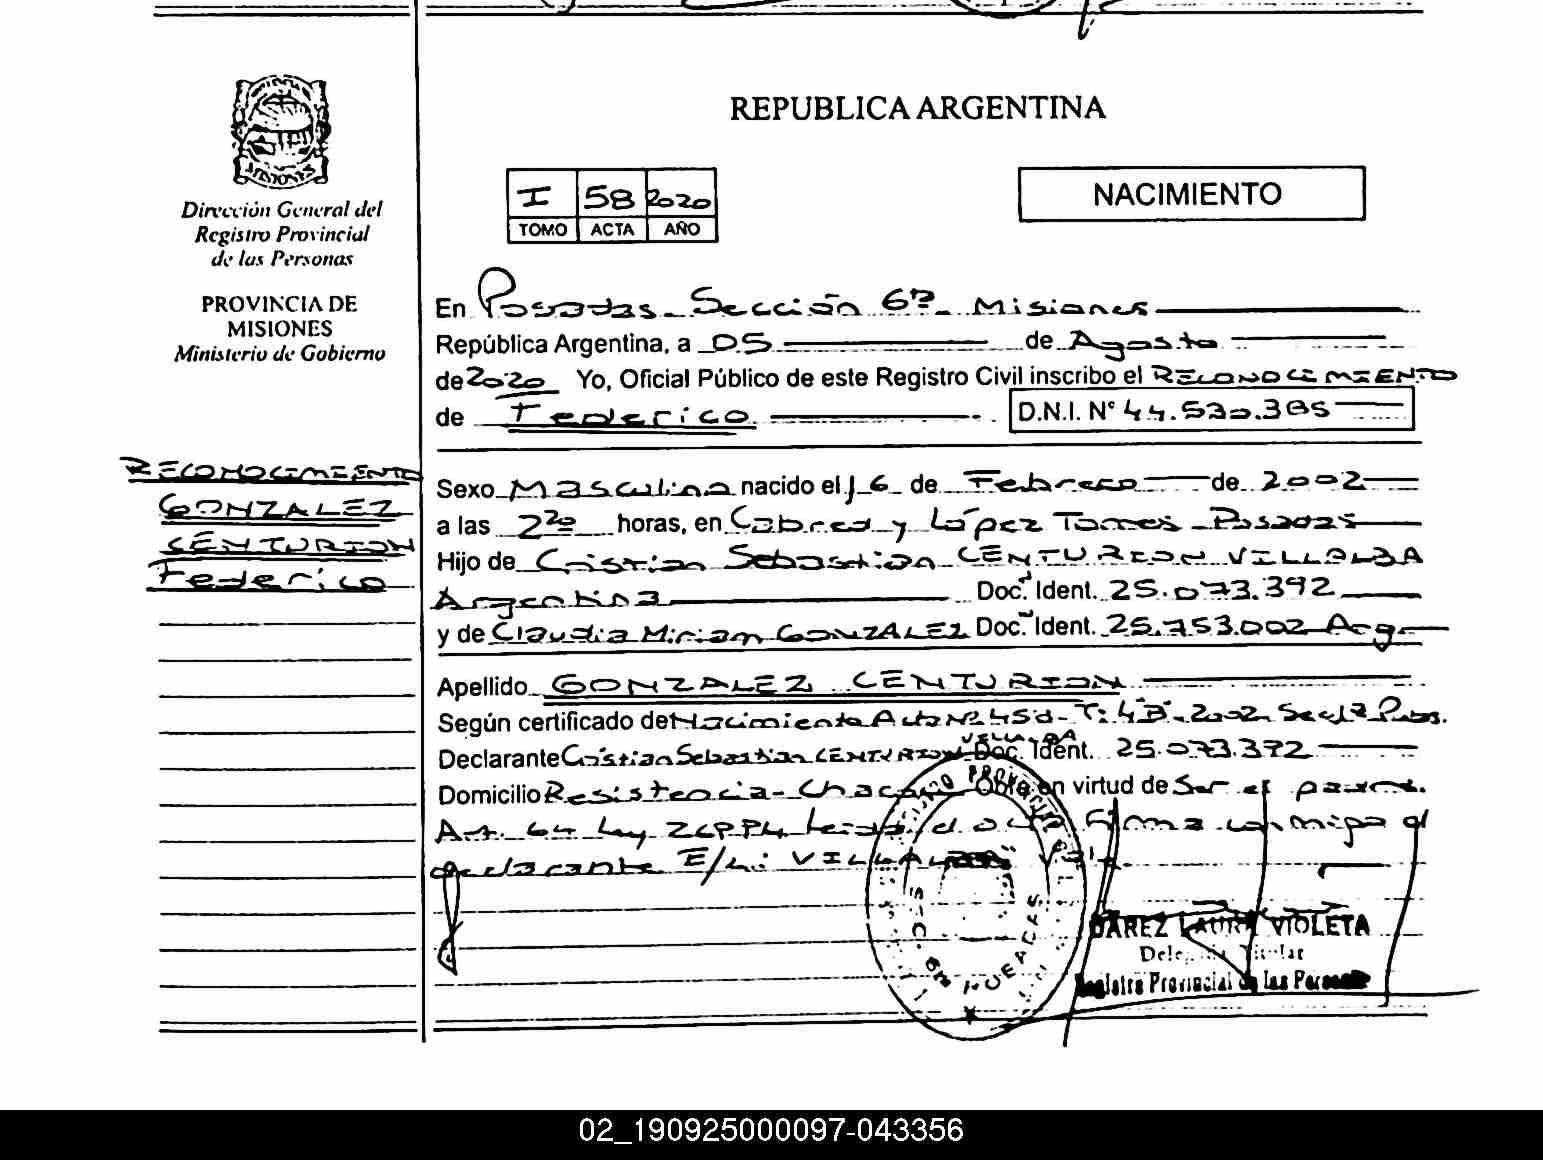 REPUBLICA ARGENTINA
NACIMIENTO
I 58 2020
TOMO ACTA AÑO
MISIONES
Dirección General del
Registro Provincial
de las Personas
PROVINCIA DE
MISIONES
Ministerio de Gobierno
RECONOCIMIENTO
GONZALEZ
CENTURION
Federico
En Posadas - Sección 6ª - Misiones
República Argentina, a 05 de Agosto
de 2020 Yo, Oficial Público de este Registro Civil inscribo el RECONOCIMIENTO
de Federico D.N.I. N° 44.530.385
Sexo Masculino nacido el 16 de Febrero de 2002
a las 22 horas, en Cabred y López Torres - Posadas
Hijo de Cristian Sebastian CENTURION VILLALBA
Argentina Doc. Ident. 25.073.392
y de Claudia Miriam GONZALEZ Doc. Ident. 25.753.002 Arg.
Apellido GONZALEZ CENTURION
Según certificado de Nacimiento Acta Nº T: 2002 Secc
VILLALBA
Declarante Cristian Sebastian CENTURION Doc. Ident. 25.073.392
Domicilio Resistencia - Chaco Obra en virtud de Ser el padre.
Art. 64 Ley Leida el Firma conmigo el
declarante E/L: VILLALBA Vale
LAURA VIOLETA
Delegada Titular
Registro Provincial de las Personas
02_190925000097-043356